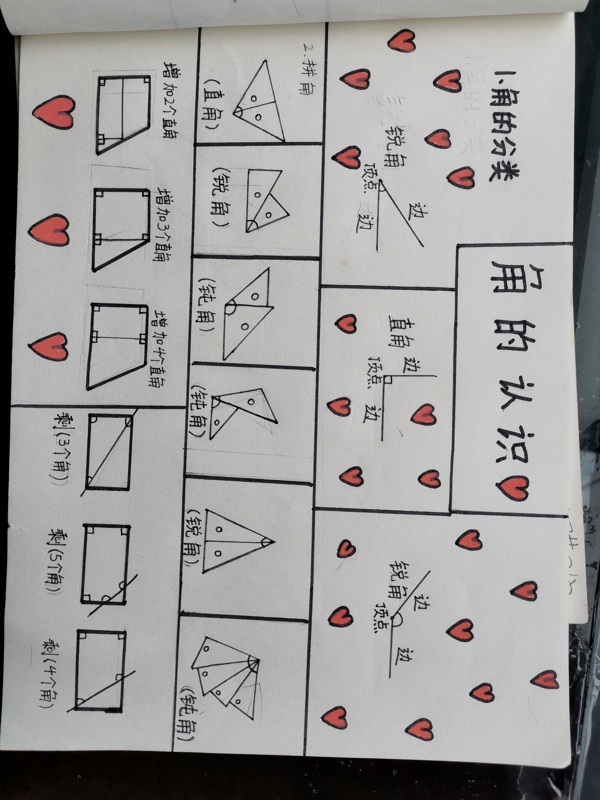 角的认识
1.角的分类
锐角
顶点
边
边
直角
顶点
边
边
锐角
顶点
边
边
2.拼角
(直角)
(锐角)
(钝角)
(钝角)
(锐角)
(钝角)
增加2个直角
增加3个直角
增加4个直角
剩(3个角)
剩(5个角)
剩(4个角)